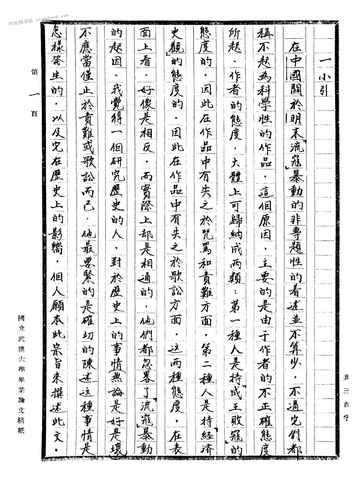 一 小引
在中國關於明末流寇暴動的非專題性的着述並不算少，不過它們都
稱不起為科學性的作品，這個原因，主要的是由于作者的不正確態度
所起，作者的態度，大體上可歸納成兩類：第一種人是持成王敗寇的
態度的，因此在作品中有失之於咒罵和責難方面，第二種人是持經濟
史觀的態度的，因此在作品中有失之於歌訟方面，這兩種態度，在表
面上看，好像是相反，而實際上却是相通的，他們都忽畧了流寇暴動
的起因，我覺得一個研究歷史的人，對於歷史上的事情無論是好是壞
不應當僅止於責難或歌訟而已，他最要緊的是確切的陳述這種事情是
怎樣發生的，以及它在歷史上的影響，個人願本此宗旨來撰述此文。
第一頁
國立武漢大學畢業論文稿紙